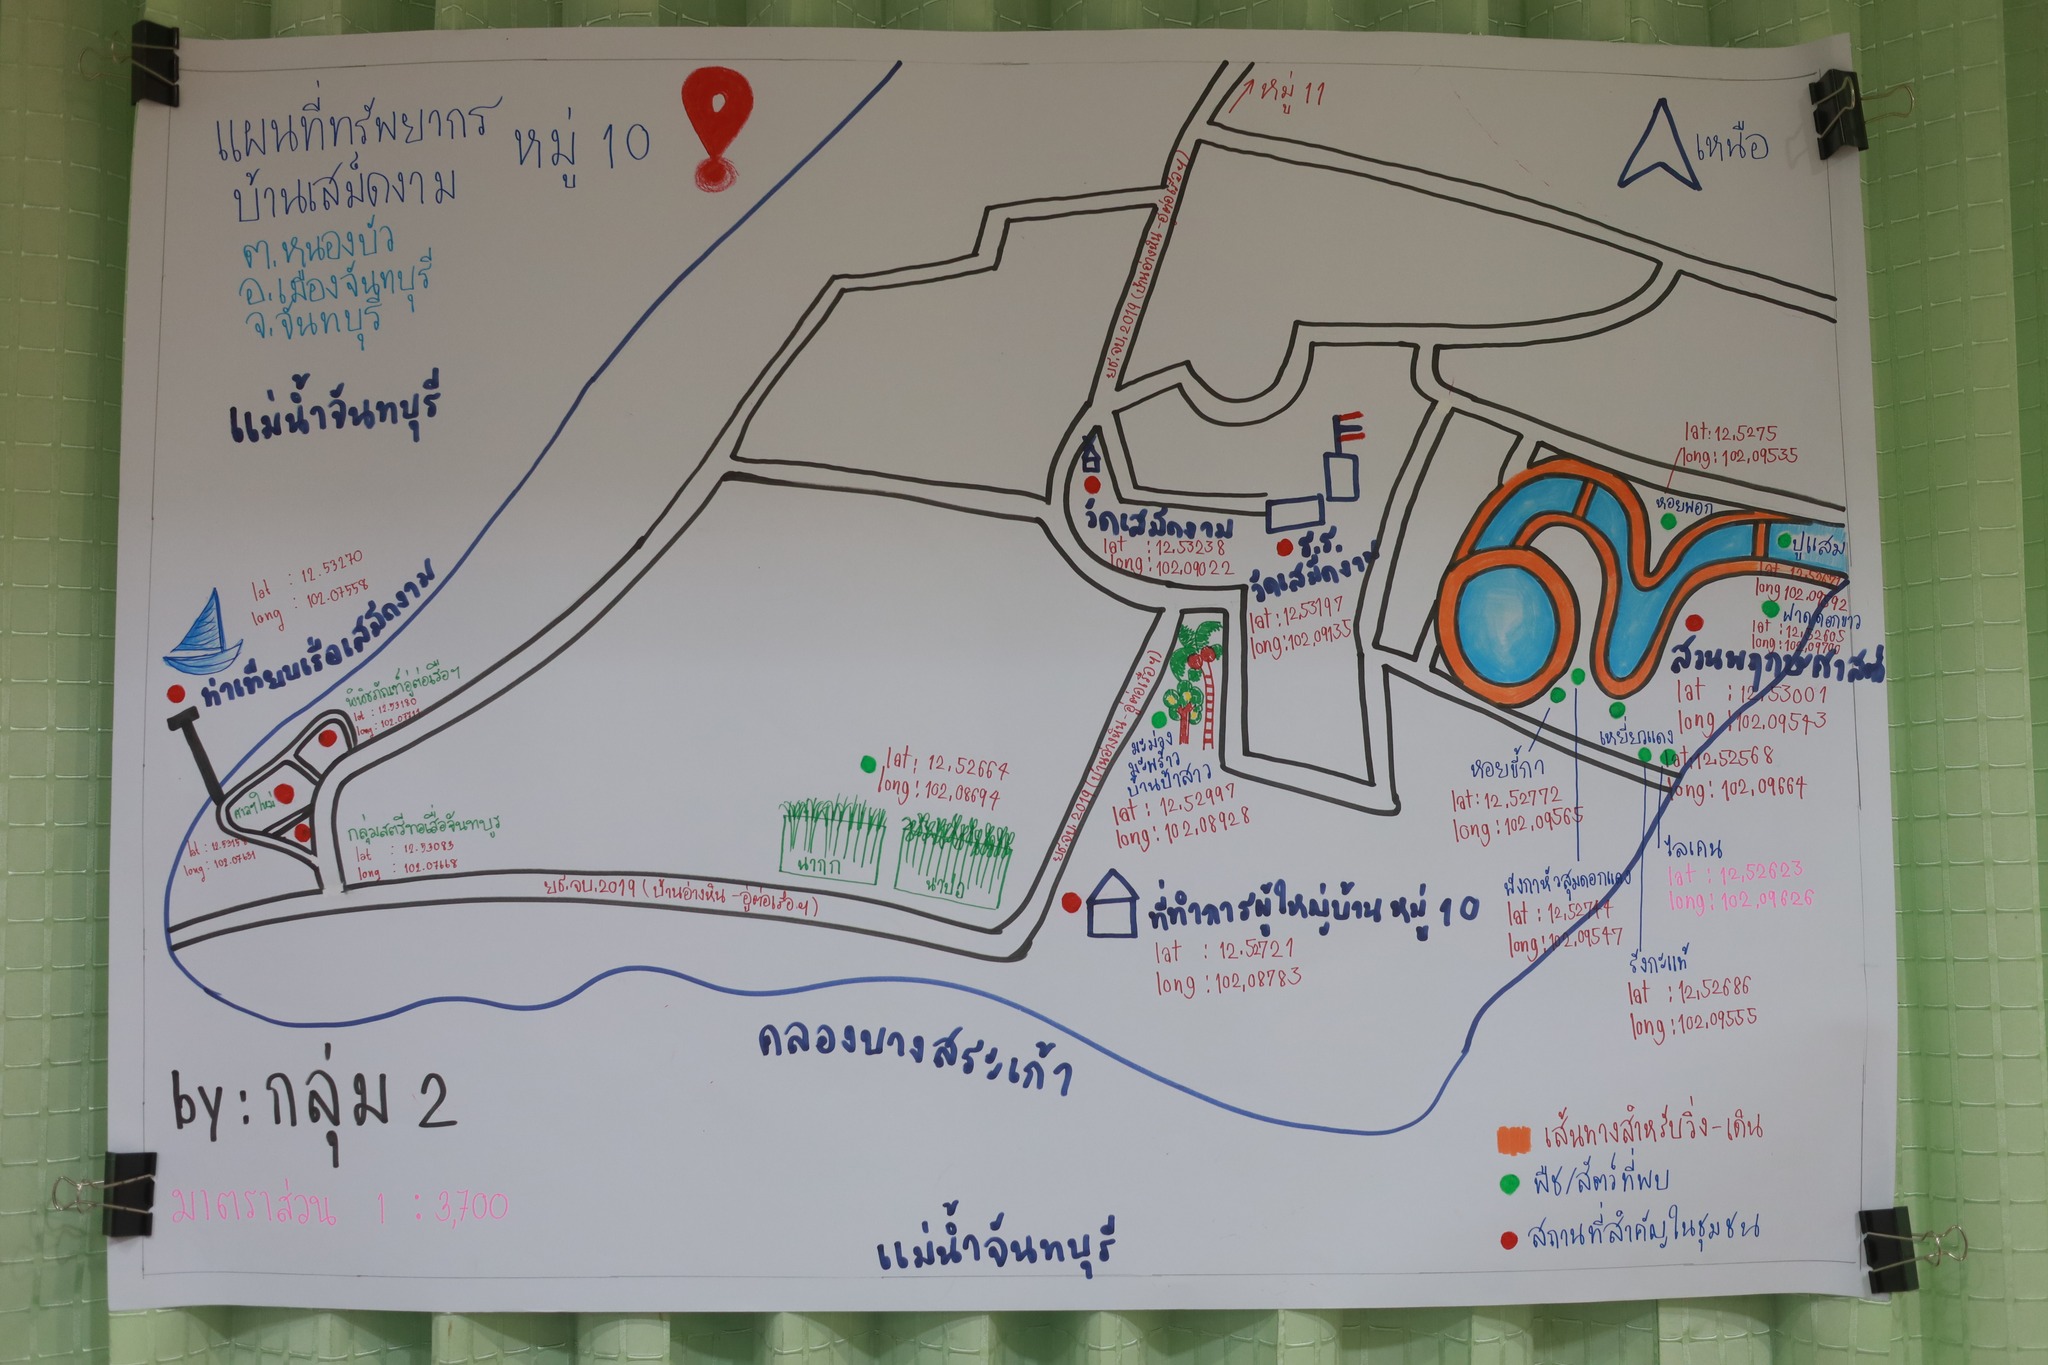 แผนที่ทรัพยากร หมู่ 10
บ้านเสม็ดงาม
ต.หนองบัว
อ.เมืองจันทบุรี
จ.จันทบุรี
แม่น้ำจันทบุรี
หมู่ 11
เหนือ
ยธ.จบ.2019 (บ้านอ่างหิน-อู่ต่อเรือฯ)
lat:12.5275
long:102.09535
หอยพอก
ปูแสม
long 102.09592
ฝาดดอกขาว
lat : 12.52605
long :102.09700
วัดเสม็ดงาม
lat :12.53238
long:102.09022
ร.ร.
วัดเสม็ดงาม
lat:12.53197
long:102.09135
lat : 12.53270
long : 102.07558
ท่าเทียบเรือเสม็ดงาม
พิพิธภัณฑ์อู่ต่อเรือฯ
lat : 12.53180
ศาลาใหม่
long : 102.07631
กลุ่มสตรีทอเสื่อจันทบูร
lat : 12.53083
long : 102.07668
lat:12.52664
long:102.08694
นากก
นาปอ
ยธ.จบ.2019 (บ้านอ่างหิน-อู่ต่อเรือฯ)
ยธ.จบ.2019 (บ้านอ่างหิน-อู่ต่อเรือฯ)
มะม่วง
มะพร้าว
บ้านป้าสาว
lat:12.52997
long:102.08928
สวนพฤกษศาสตร์
lat :12.53001
long:102.09543
เหยี่ยวแดง
lat:12.52568
long:102.09664
หอยขี้กา
lat:12.52772
long:102.09565
ไลเคน
lat:12.52623
long:102.09626
พังกาหัวสุมดอกแดง
lat:12.52714
long:102.09547
รังกะแท้
lat :12.52686
long:102.09555
ที่ทำการผู้ใหญ่บ้าน หมู่ 10
lat :12.52721
long:102.08783
คลองบางสระเก้า
by:กลุ่ม 2
มาตราส่วน 1 : 3,700
แม่น้ำจันทบุรี
เส้นทางสำหรับวิ่ง-เดิน
พืช/สัตว์ที่พบ
สถานที่สำคัญในชุมชน